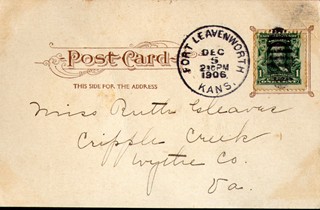 Post Card
THIS SIDE FOR THE ADDRESS
FORT LEAVENWORTH
DEC
5
2 PM
1906
KANS.
1 1
Miss Ruth Cleaves
Cripple Creek
Wythe Co.
Va.